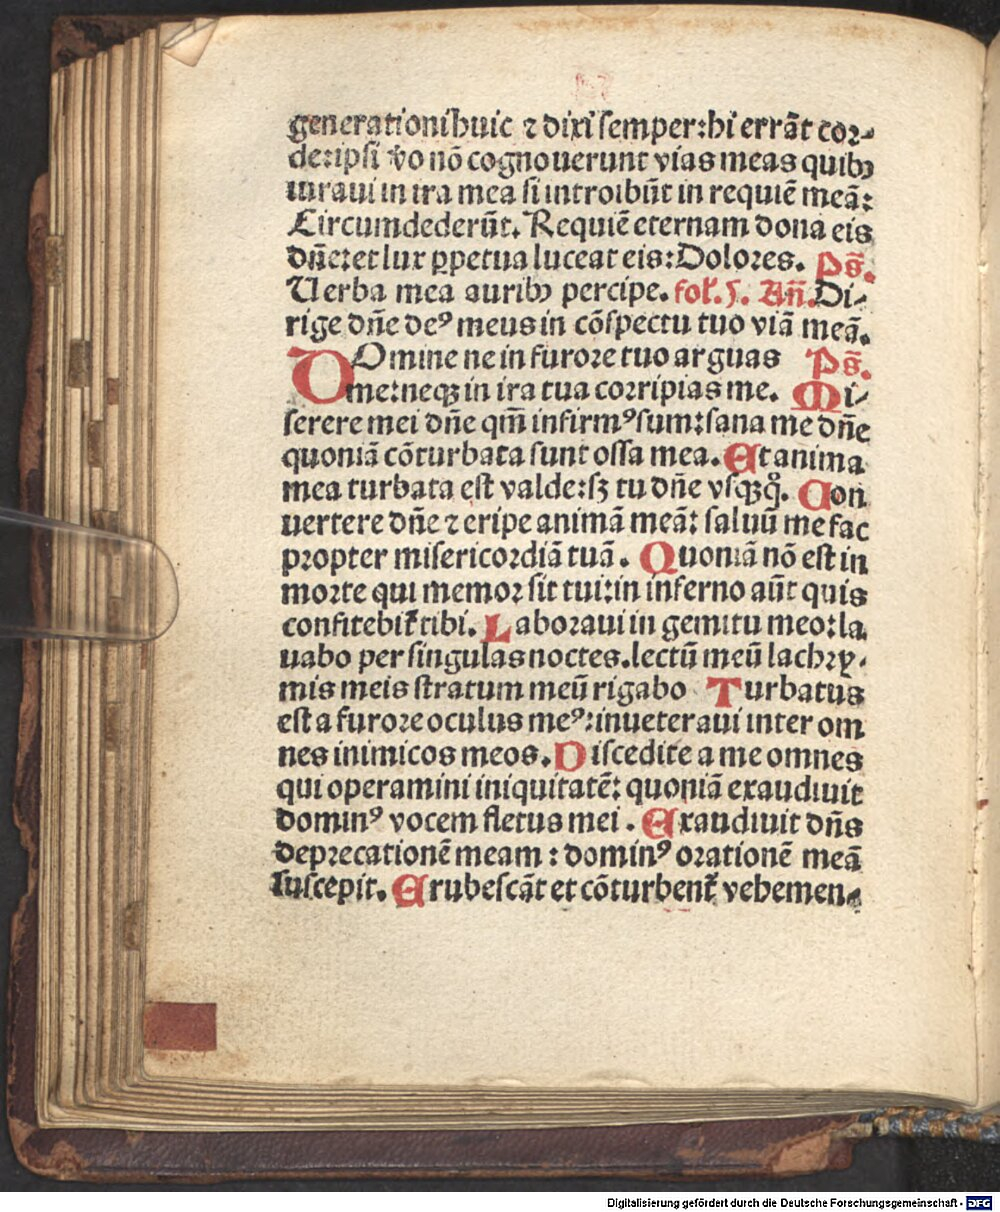 generationi huic ⁊ dixi semper: hi errāt cor-
de: ipsi v̄o nō cognouerunt vias meas quibꝰ
iuraui in ira mea si introibūt in requiē meā:
Circumdederūt. Requiē eternam dona eis
dn̄e: et lux ꝑpetua luceat eis: Dolores. Ps̄.
Uerba mea auribꝰ percipe. fol. 5. An̄. Di-
rige dn̄e deꝰ meus in cōspectu tuo viā meā.
DOmine ne in furore tuo arguas Ps̄.
me: neqꝫ in ira tua corripias me. Mi-
serere mei dn̄e qm̄ infirmꝰ sum: sana me dn̄e
quoniā cōturbata sunt ossa mea. Et anima
mea turbata est valde: sꝫ tu dn̄e vsqꝫq̊. Con
uertere dn̄e ⁊ eripe animā meā: saluū me fac
propter misericordiā tuā. Quoniā nō est in
morte qui memor sit tui: in inferno aūt quis
confitebit᷑ tibi. Laboraui in gemitu meo: la
uabo per singulas noctes. lectū meū lachry-
mis meis stratum meū rigabo Turbatus
est a furore oculus meꝰ: inueteraui inter om
nes inimicos meos. Discedite a me omnes
qui operamini iniquitatē: quoniā exaudiuit
dominꝰ vocem fletus mei. Exaudiuit dn̄s
deprecationē meam: dominꝰ orationē meā
suscepit. Erubescāt et cōturbent᷑ vehemen-
Digitalisierung gefördert durch die Deutsche Forschungsgemeinschaft - DFG